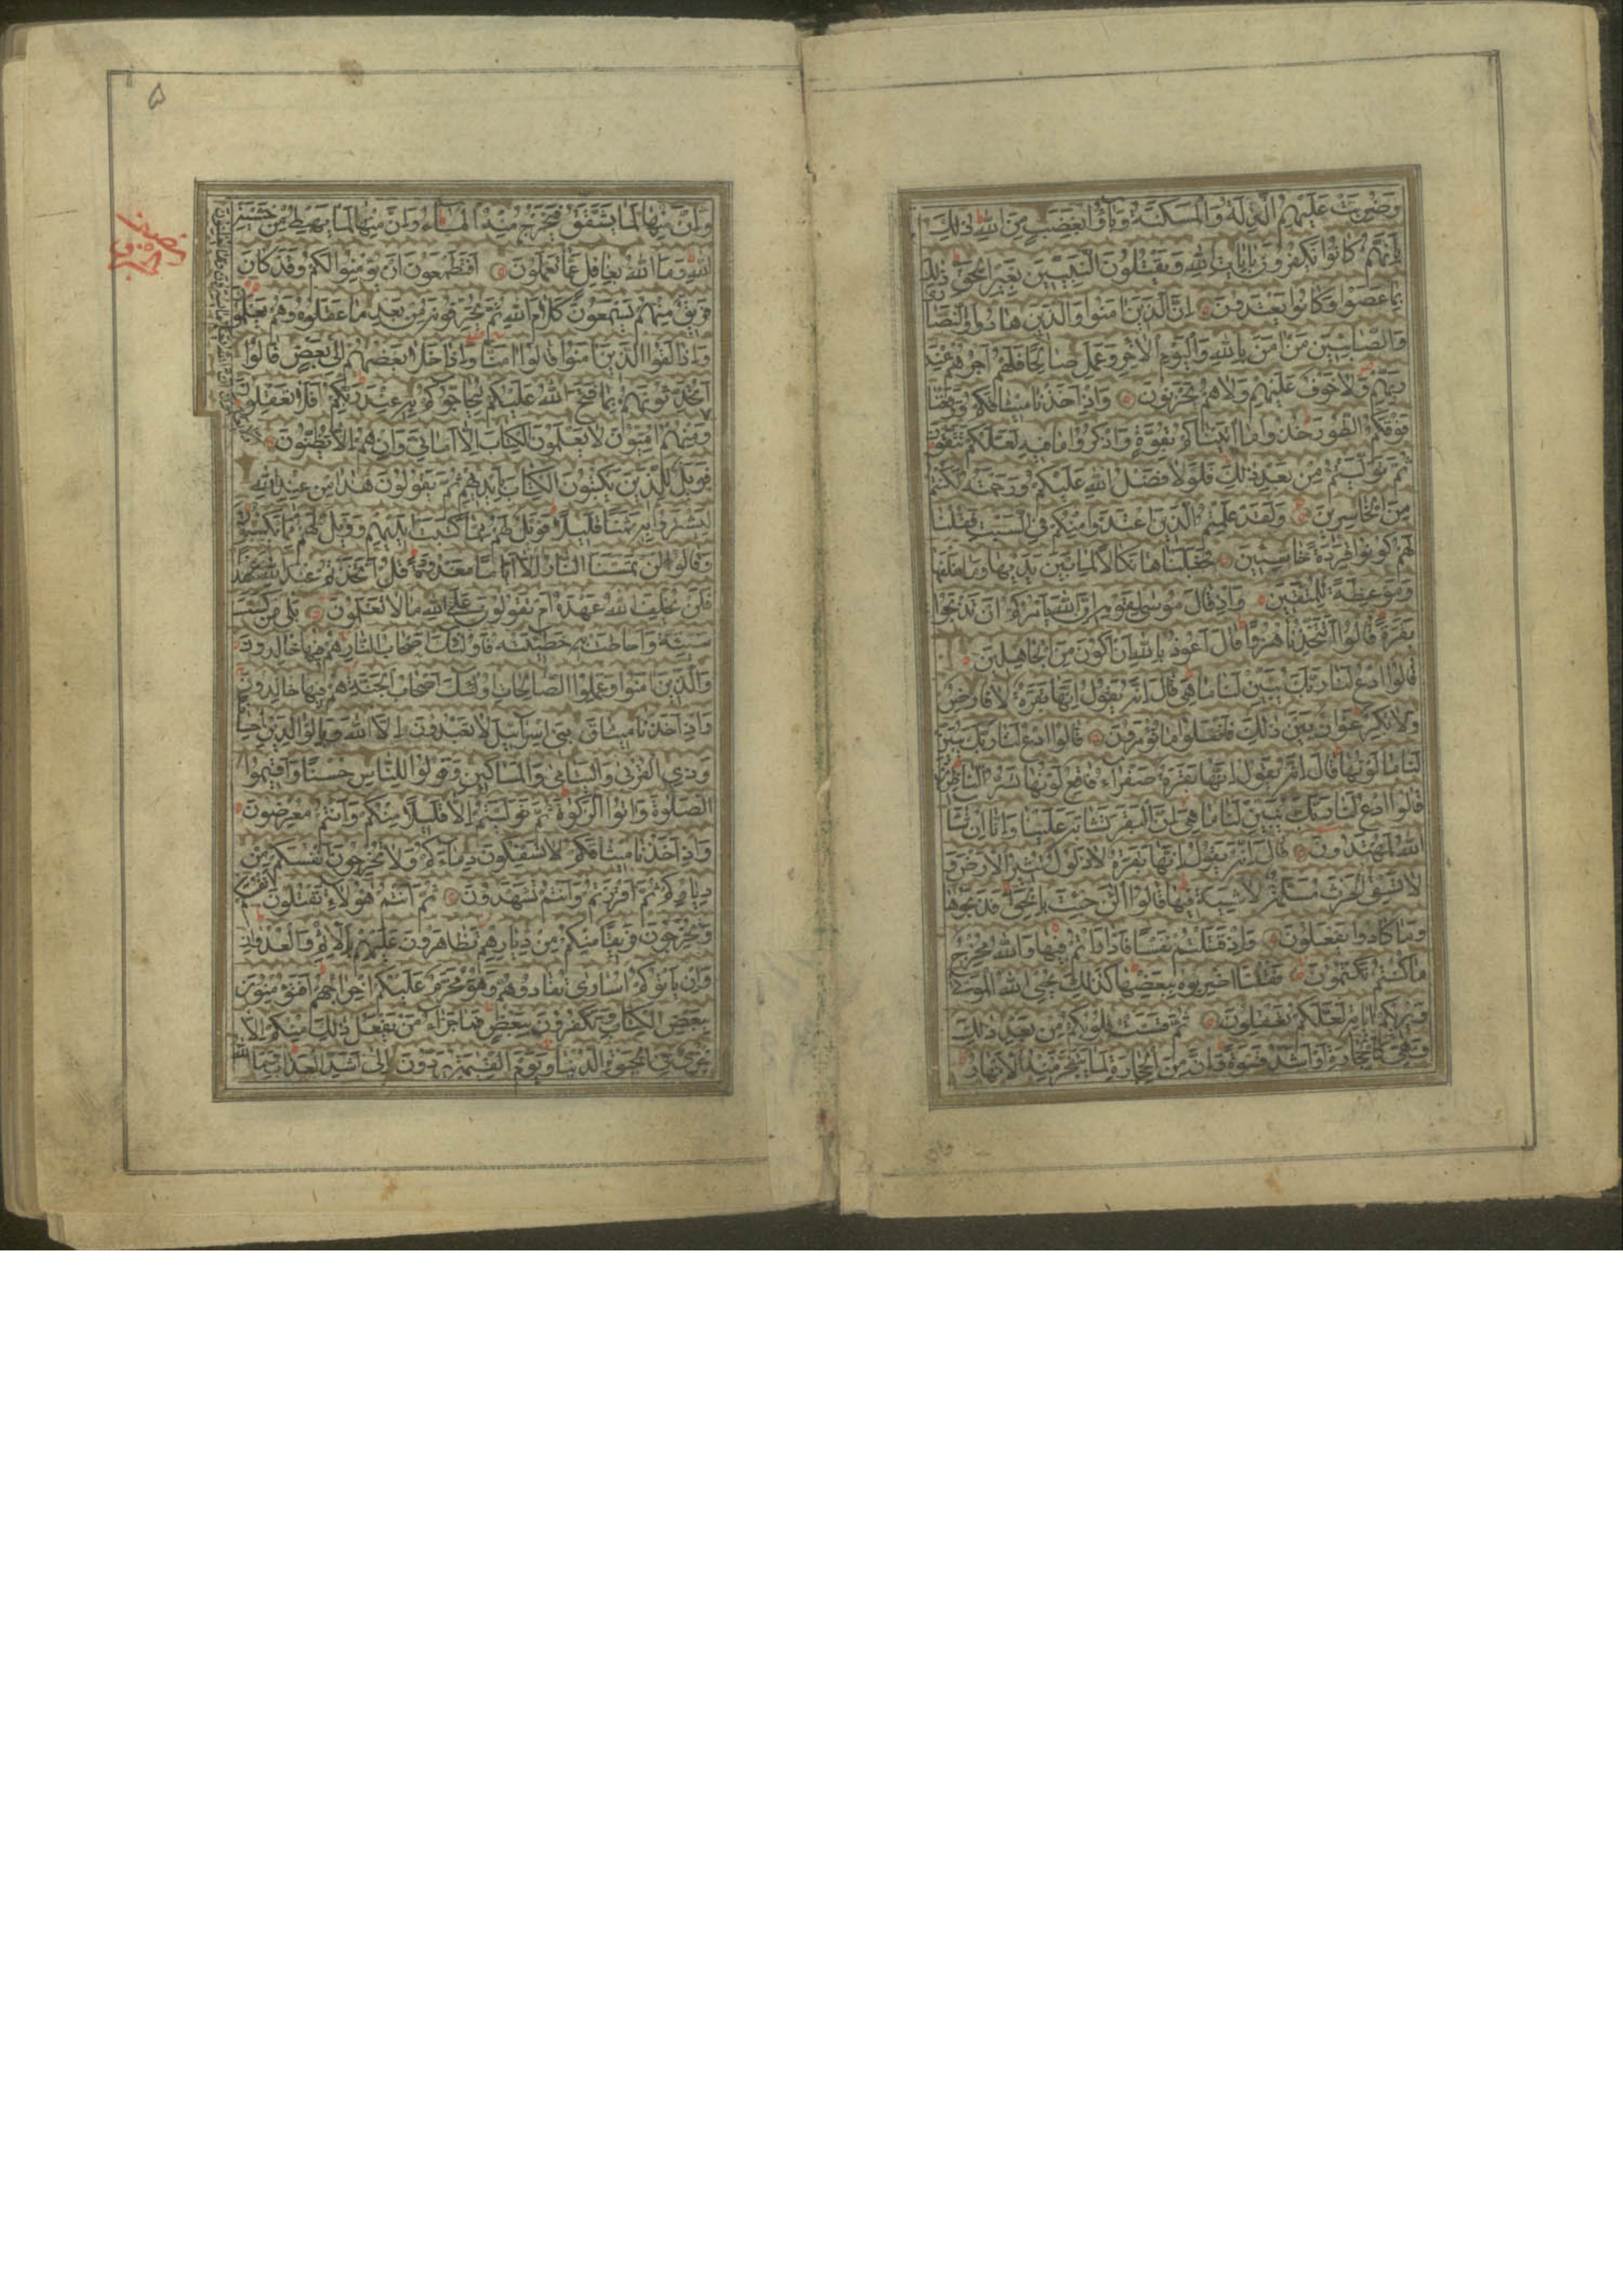 وَضُرِبَتْ عَلَيْهِمُ الذِّلَّةُ وَالْمَسْكَنَةُ وَبَاؤُا بِغَضَبٍ مِنَ اللهِ ذٰلِكَ
بِاَنَّهُمْ كَانُوا يَكْفُرُونَ بِاٰيَاتِ اللهِ وَيَقْتُلُونَ النَّبِيِّينَ بِغَيْرِ الْحَقِّ ذٰلِكَ
بِمَا عَصَوْا وَكَانُوا يَعْتَدُونَ اِنَّ الَّذِينَ اٰمَنُوا وَالَّذِينَ هَادُوا وَالنَّصَارٰى
وَالصَّابِئِينَ مَنْ اٰمَنَ بِاللهِ وَالْيَوْمِ الْاٰخِرِ وَعَمِلَ صَالِحًا فَلَهُمْ اَجْرُهُمْ عِنْدَ
رَبِّهِمْ وَلَا خَوْفٌ عَلَيْهِمْ وَلَا هُمْ يَحْزَنُونَ وَاِذْ اَخَذْنَا مِيثَاقَكُمْ وَرَفَعْنَا
فَوْقَكُمُ الطُّورَ خُذُوا مَا اٰتَيْنَاكُمْ بِقُوَّةٍ وَاذْكُرُوا مَا فِيهِ لَعَلَّكُمْ تَتَّقُونَ
ثُمَّ تَوَلَّيْتُمْ مِنْ بَعْدِ ذٰلِكَ فَلَوْلَا فَضْلُ اللهِ عَلَيْكُمْ وَرَحْمَتُهُ لَكُنْتُمْ
مِنَ الْخَاسِرِينَ وَلَقَدْ عَلِمْتُمُ الَّذِينَ اعْتَدَوْا مِنْكُمْ فِي السَّبْتِ فَقُلْنَا
لَهُمْ كُونُوا قِرَدَةً خَاسِئِينَ فَجَعَلْنَاهَا نَكَالًا لِمَا بَيْنَ يَدَيْهَا وَمَا خَلْفَهَا
وَمَوْعِظَةً لِلْمُتَّقِينَ وَاِذْ قَالَ مُوسٰى لِقَوْمِهِ اِنَّ اللهَ يَأْمُرُكُمْ اَنْ تَذْبَحُوا
بَقَرَةً قَالُوا اَتَتَّخِذُنَا هُزُوًا قَالَ اَعُوذُ بِاللهِ اَنْ اَكُونَ مِنَ الْجَاهِلِينَ
قَالُوا ادْعُ لَنَا رَبَّكَ يُبَيِّنْ لَنَا مَا هِيَ قَالَ اِنَّهُ يَقُولُ اِنَّهَا بَقَرَةٌ لَا فَارِضٌ
وَلَا بِكْرٌ عَوَانٌ بَيْنَ ذٰلِكَ فَافْعَلُوا مَا تُؤْمَرُونَ قَالُوا ادْعُ لَنَا رَبَّكَ يُبَيِّنْ
لَنَا مَا لَوْنُهَا قَالَ اِنَّهُ يَقُولُ اِنَّهَا بَقَرَةٌ صَفْرَاءُ فَاقِعٌ لَوْنُهَا تَسُرُّ النَّاظِرِينَ
قَالُوا ادْعُ لَنَا رَبَّكَ يُبَيِّنْ لَنَا مَا هِيَ اِنَّ الْبَقَرَ تَشَابَهَ عَلَيْنَا وَاِنَّا اِنْ شَاءَ
اللهُ لَمُهْتَدُونَ قَالَ اِنَّهُ يَقُولُ اِنَّهَا بَقَرَةٌ لَا ذَلُولٌ تُثِيرُ الْاَرْضَ وَ
لَا تَسْقِي الْحَرْثَ مُسَلَّمَةٌ لَا شِيَةَ فِيهَا قَالُوا الْاٰنَ جِئْتَ بِالْحَقِّ فَذَبَحُوهَا
وَمَا كَادُوا يَفْعَلُونَ وَاِذْ قَتَلْتُمْ نَفْسًا فَادَّارَأْتُمْ فِيهَا وَاللهُ مُخْرِجٌ
مَا كُنْتُمْ تَكْتُمُونَ فَقُلْنَا اضْرِبُوهُ بِبَعْضِهَا كَذٰلِكَ يُحْيِي اللهُ الْمَوْتٰى
وَيُرِيكُمْ اٰيَاتِهِ لَعَلَّكُمْ تَعْقِلُونَ ثُمَّ قَسَتْ قُلُوبُكُمْ مِنْ بَعْدِ ذٰلِكَ
فَهِيَ كَالْحِجَارَةِ اَوْ اَشَدُّ قَسْوَةً وَاِنَّ مِنَ الْحِجَارَةِ لَمَا يَتَفَجَّرُ مِنْهُ الْاَنْهَارُ
وان
۵
وَاِنَّ مِنْهَا لَمَا يَشَّقَّقُ فَيَخْرُجُ مِنْهُ الْمَاءُ وَاِنَّ مِنْهَا لَمَا يَهْبِطُ مِنْ خَشْيَةِ
اللهِ وَمَا اللهُ بِغَافِلٍ عَمَّا تَعْمَلُونَ اَفَتَطْمَعُونَ اَنْ يُؤْمِنُوا لَكُمْ وَقَدْ كَانَ
فَرِيقٌ مِنْهُمْ يَسْمَعُونَ كَلَامَ اللهِ ثُمَّ يُحَرِّفُونَهُ مِنْ بَعْدِ مَا عَقَلُوهُ وَهُمْ يَعْلَمُونَ
وَاِذَا لَقُوا الَّذِينَ اٰمَنُوا قَالُوا اٰمَنَّا وَاِذَا خَلَا بَعْضُهُمْ اِلٰى بَعْضٍ قَالُوا
اَتُحَدِّثُونَهُمْ بِمَا فَتَحَ اللهُ عَلَيْكُمْ لِيُحَاجُّوكُمْ بِهِ عِنْدَ رَبِّكُمْ اَفَلَا تَعْقِلُونَ
وَمِنْهُمْ اُمِّيُّونَ لَا يَعْلَمُونَ الْكِتَابَ اِلَّا اَمَانِيَّ وَاِنْ هُمْ اِلَّا يَظُنُّونَ
فَوَيْلٌ لِلَّذِينَ يَكْتُبُونَ الْكِتَابَ بِاَيْدِيهِمْ ثُمَّ يَقُولُونَ هٰذَا مِنْ عِنْدِ اللهِ
لِيَشْتَرُوا بِهِ ثَمَنًا قَلِيلًا فَوَيْلٌ لَهُمْ مِمَّا كَتَبَتْ اَيْدِيهِمْ وَوَيْلٌ لَهُمْ مِمَّا يَكْسِبُونَ
وَقَالُوا لَنْ تَمَسَّنَا النَّارُ اِلَّا اَيَّامًا مَعْدُودَةً قُلْ اَتَّخَذْتُمْ عِنْدَ اللهِ عَهْدًا
فَلَنْ يُخْلِفَ اللهُ عَهْدَهُ اَمْ تَقُولُونَ عَلَى اللهِ مَا لَا تَعْلَمُونَ بَلٰى مَنْ كَسَبَ
سَيِّئَةً وَاَحَاطَتْ بِهِ خَطِيئَتُهُ فَاُولٰئِكَ اَصْحَابُ النَّارِ هُمْ فِيهَا خَالِدُونَ
وَالَّذِينَ اٰمَنُوا وَعَمِلُوا الصَّالِحَاتِ اُولٰئِكَ اَصْحَابُ الْجَنَّةِ هُمْ فِيهَا خَالِدُونَ
وَاِذْ اَخَذْنَا مِيثَاقَ بَنِي اِسْرَائِيلَ لَا تَعْبُدُونَ اِلَّا اللهَ وَبِالْوَالِدَيْنِ اِحْسَانًا
وَذِي الْقُرْبٰى وَالْيَتَامٰى وَالْمَسَاكِينِ وَقُولُوا لِلنَّاسِ حُسْنًا وَاَقِيمُوا
الصَّلٰوةَ وَاٰتُوا الزَّكٰوةَ ثُمَّ تَوَلَّيْتُمْ اِلَّا قَلِيلًا مِنْكُمْ وَاَنْتُمْ مُعْرِضُونَ
وَاِذْ اَخَذْنَا مِيثَاقَكُمْ لَا تَسْفِكُونَ دِمَاءَكُمْ وَلَا تُخْرِجُونَ اَنْفُسَكُمْ مِنْ
دِيَارِكُمْ ثُمَّ اَقْرَرْتُمْ وَاَنْتُمْ تَشْهَدُونَ ثُمَّ اَنْتُمْ هٰؤُلَاءِ تَقْتُلُونَ اَنْفُسَكُمْ
وَتُخْرِجُونَ فَرِيقًا مِنْكُمْ مِنْ دِيَارِهِمْ تَظَاهَرُونَ عَلَيْهِمْ بِالْاِثْمِ وَالْعُدْوَانِ
وَاِنْ يَأْتُوكُمْ اُسَارٰى تُفَادُوهُمْ وَهُوَ مُحَرَّمٌ عَلَيْكُمْ اِخْرَاجُهُمْ اَفَتُؤْمِنُونَ
بِبَعْضِ الْكِتَابِ وَتَكْفُرُونَ بِبَعْضٍ فَمَا جَزَاءُ مَنْ يَفْعَلُ ذٰلِكَ مِنْكُمْ اِلَّا
خِزْيٌ فِي الْحَيٰوةِ الدُّنْيَا وَيَوْمَ الْقِيٰمَةِ يُرَدُّونَ اِلٰى اَشَدِّ الْعَذَابِ وَمَا اللهُ